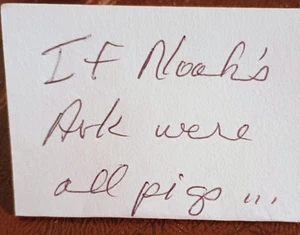 If Noah's
Ark were
all pigs ...